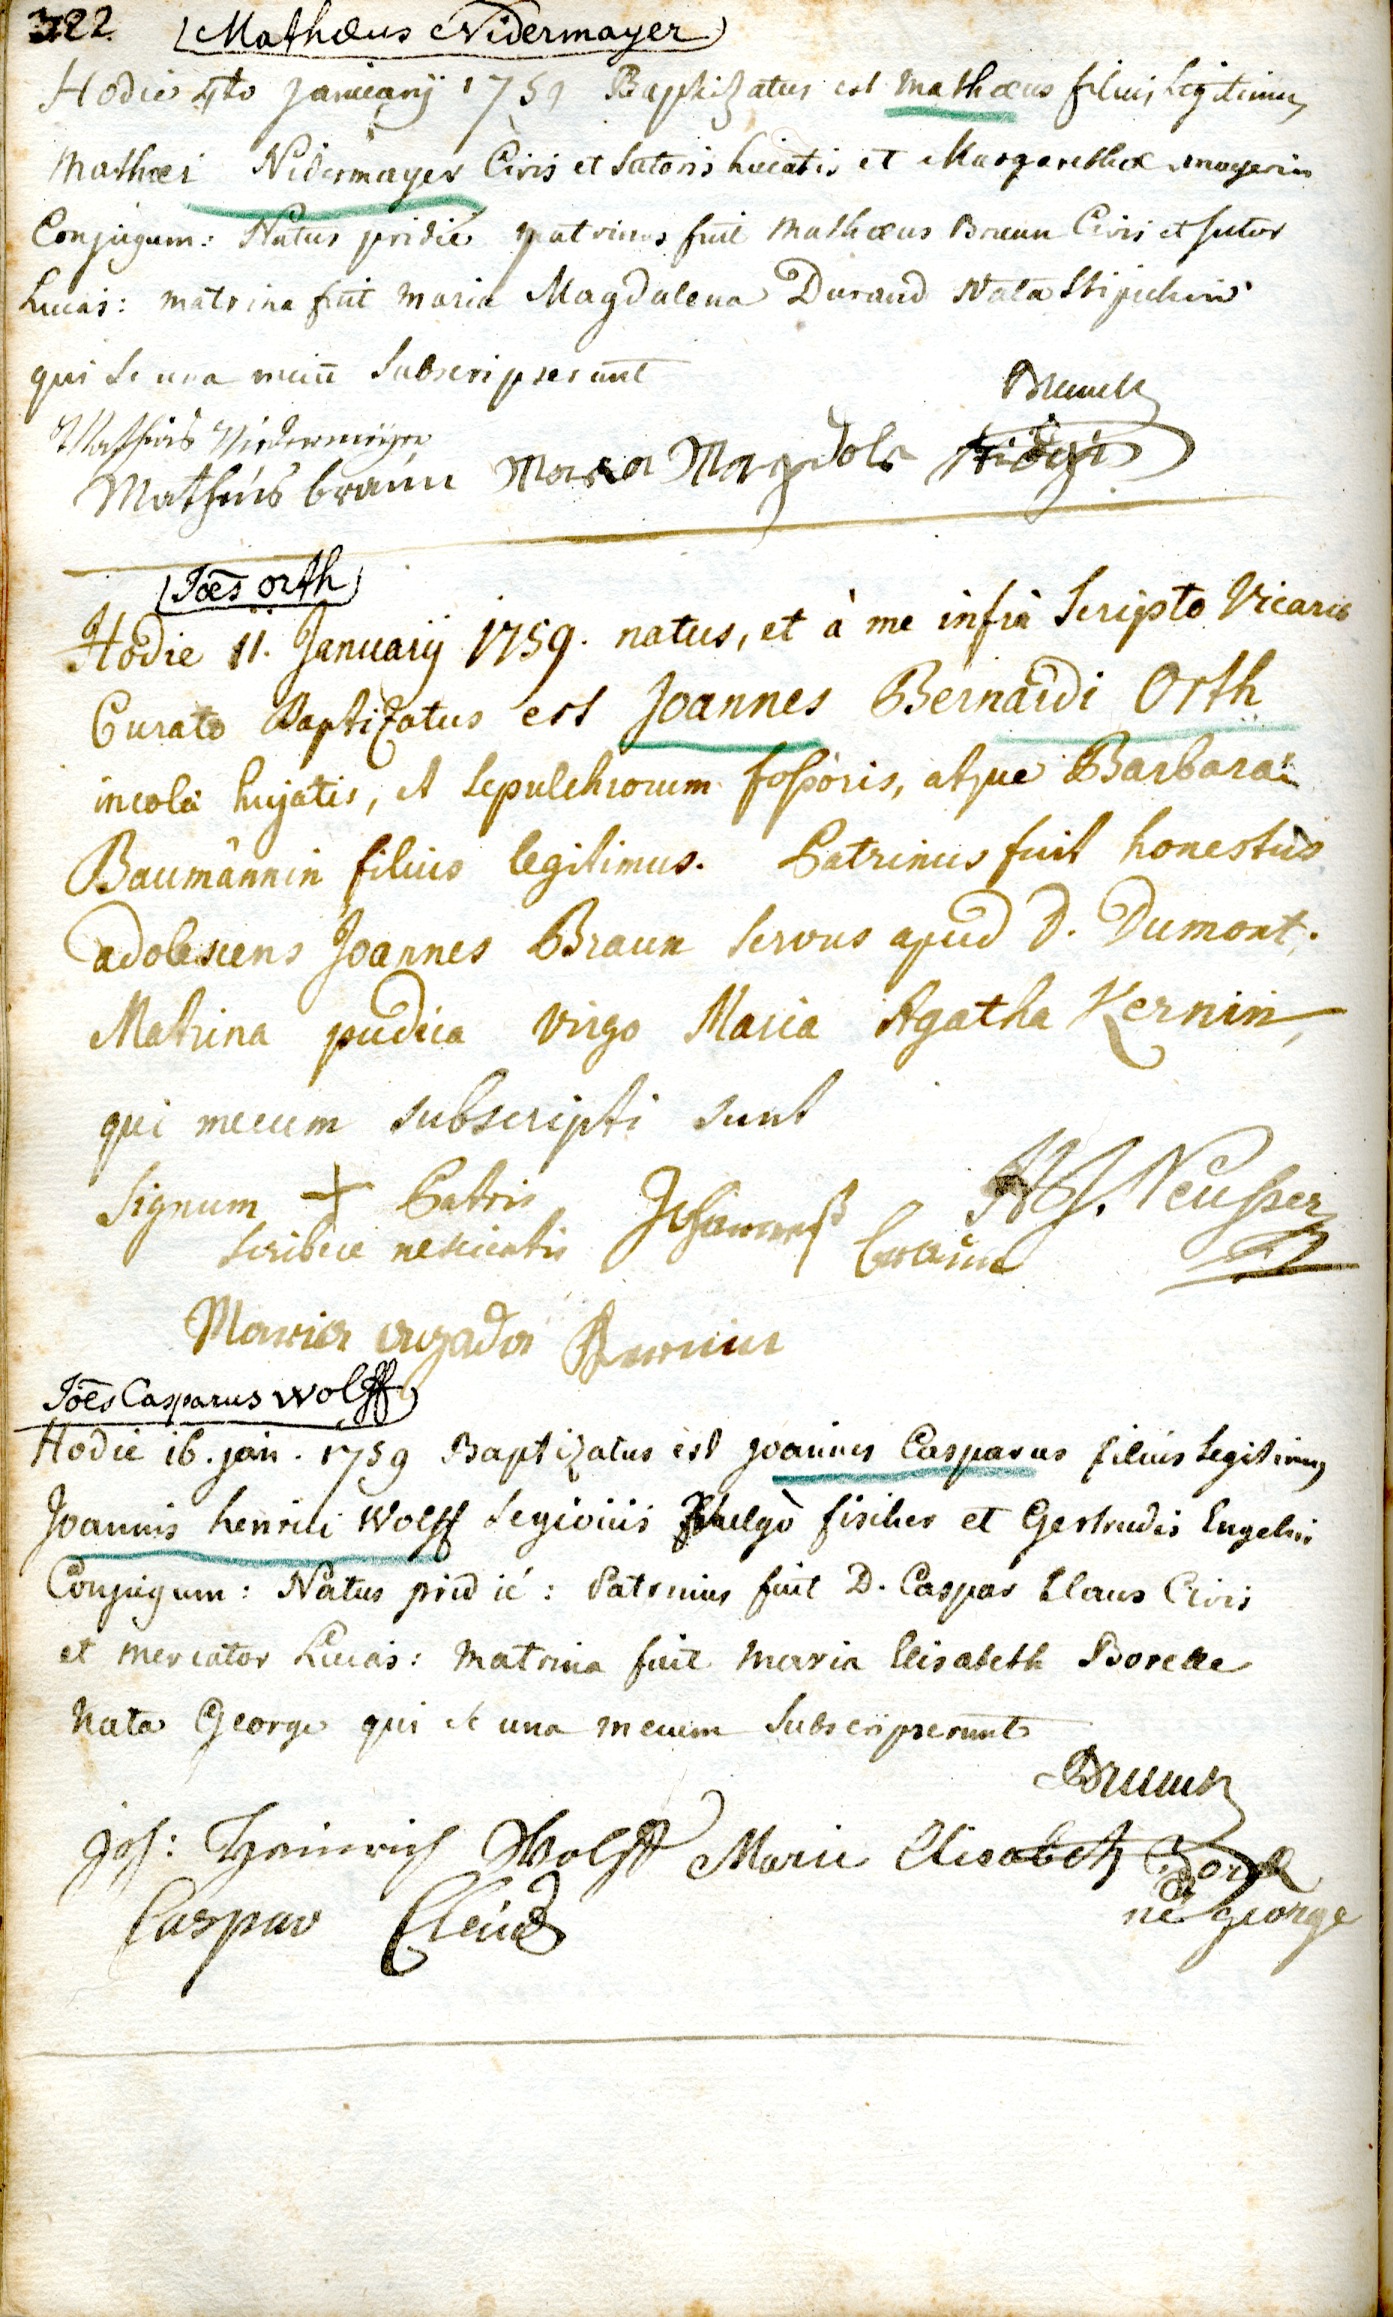 322
Mathæus Nidermayer
Hodie 4to January 1759 Baptizatus est Mathæus filius Legitimus
Mathæi Nidermayer Civis et Sutoris huiatis et Margarethæ
Conjugum: Natus pridie patrinus fuit Mathæus Braun Civis et sutor
huias: matrina fuit Maria Magdalena Durand Nata
qui se una mecū Subscripserunt
Mathias
Mathias braun Maria Magdola
Joēs Orth
Hodie 11. Januarÿ 1759. natus, et à me infrà Scripto Vicario
Curato Baptizatus est Joannes Bernardi Orth
incolæ hujatis, et Sepulchrorum fossoris, atque Barbaræ
Baumännin filius legitimus. Patrinus fuit honestus
adolescens Joannes Braun Servus apud D. Dumont.
Matrina pudica Virgo Maria Agatha Kernin,
qui mecum subscripti sunt
Signum + Patris
Scribere nescientis Johannes braun Neusser
Maria agada Kernin
Joēs Casparus Wolff
Hodie 16. jan. 1759 Baptizatus est Joannes Casparus filius Legitimus
Joannis henrici Wolff fischer et Gertrudis
Conjugum: Natus pridie: Patrinus fuit D. Caspar Claus Civis
et mercator huias: Matrina fuit Maria Elisabeth Borelle
Nata George qui se una mecum Subscripserunt
joh: Heinrich Wolff Marie Elisabeth Borell
né george
Caspar